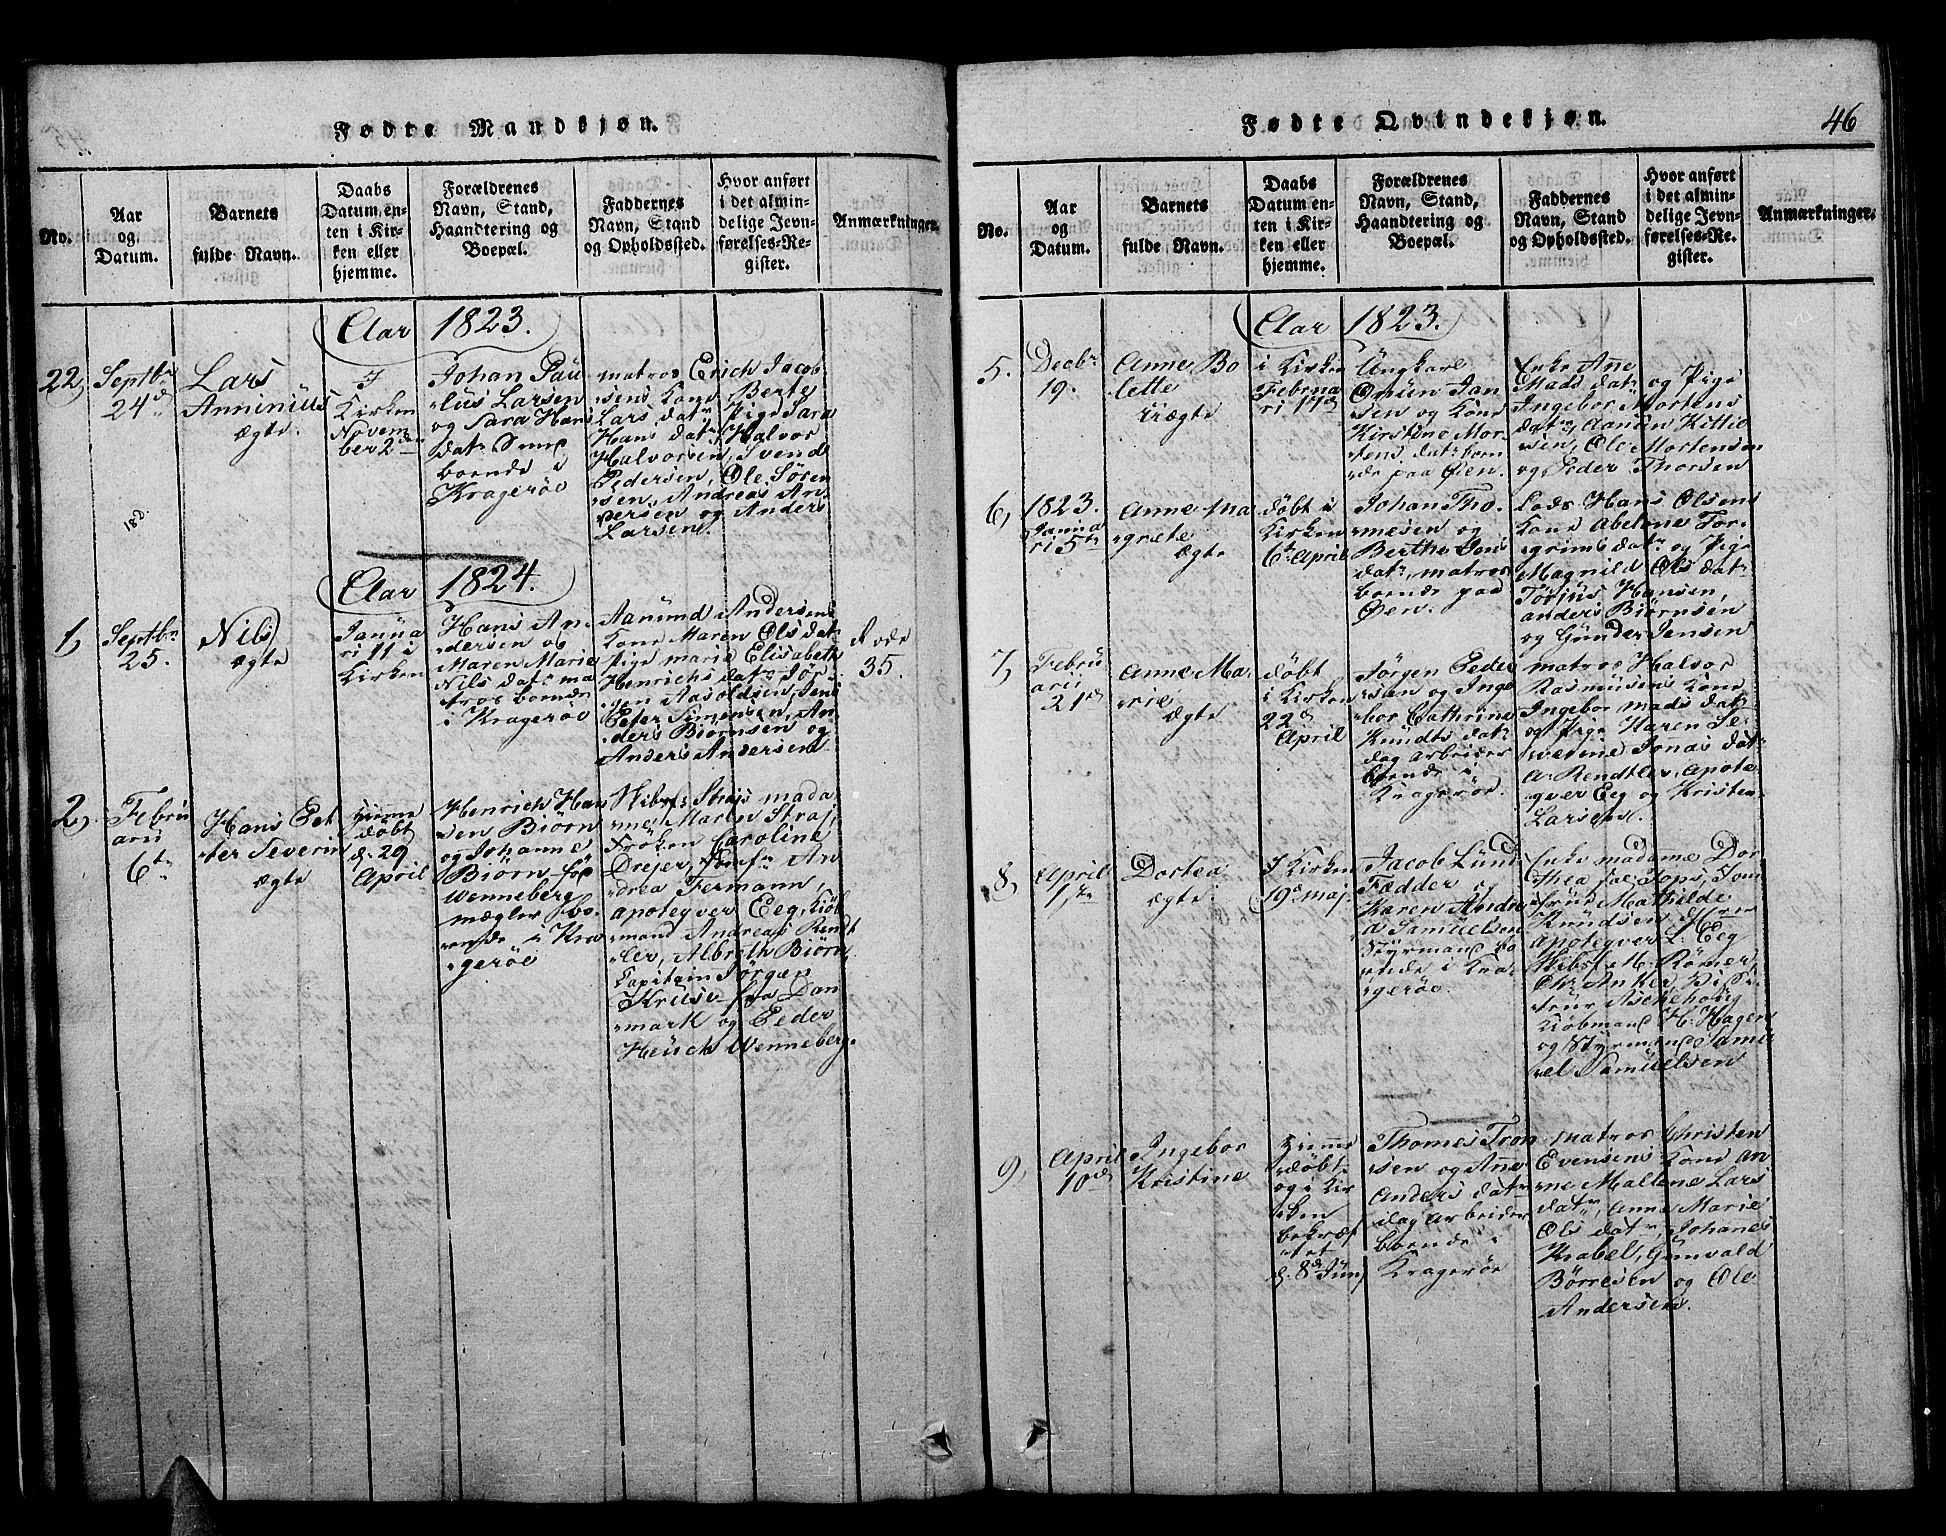 Fødte Mandkjøn.
No.
Aar og Datum.
Barnets fulde Navn.
Daabs Datum, enten i Kirken eller hjemme.
Forældrenes Navn, Stand, Haandtering og Boepæl.
Faddernes Navn, Stand og Opholdssted.
Hvor anført i det almindelige Jevnførelses-Register.
Anmærkninger.
Aar 1823.
22,
Septbr
24d
Lars
Anninius
ægte.
I
Kirken
Novem
ber 2den
Johan Pau
lus Larsen
og Sara Hans
datr
boende i
Kragerøe
matros Erich Jacob
sens Kone Berte
Lars datr Pige Sara
Hans datr, Halvor
Halvorsen, Svend
Pedersen, Ole Sören
sen, Andreas An
versen og Anders
Larsen.
18d.
Aar 1824.
1,
Septbr
25.
Nils
ægte
Janua
ri 11 i
Kirken
Hans An
dersen og
Maren Marie
Nils datr ma
tros boende
i Kragerøe
Aanund Andersens
Kone Maren Ols datr
Pige Marie Elisabeth
Henrichs datr Jör
gen Aasoldsen, Jens
Peter Simensen, An
ders Biörnsen og
Anders Andersen
35.
2,
Febru
arii
6te
Hans Pet
ter Severin
ægte
Hjeme
døbt
d. 29
April
Henrich Han
sen Biörn
og Johanne
Biörn fra
Wenneberg
mægler bo
ende i Kra
gerøe
Skibsf: Strajs mada
me, Marlev Straj,
Fröken Caroline
Drejer, Jomfr An
drea Fermann,
apoteqver Eeg, Kiöb
mand Andreas Rendt
ler, Albreth Biörn,
Capitain Jörgen
Kruse fra Dan
mark og Peder
Heuch Wenneberg.
Fødte Qvindekjøn.
46
No.
Aar og Datum.
Barnets fulde Navn.
Daabs Datum enten i Kirken eller hjemme.
Forældrenes Navn, Stand, Haandtering og Boepæl.
Faddernes Navn, Stand og Opholdssted.
Hvor anført i det almindelige Jevnførelses-Re. gister.
Anmærkninger.
Aar 1823.
5.
Decbr
19.
Anne Bo
lette
uægte
i Kirken
Februa
ri 17de
Ungkarl
Omun Jan
sen og Kone
Kirstine Mor
tens datr boen
de paa Øen.
Enke Ane
Mads datr og Pige
Ingebor Mortens
datr, Aanun Kittil
sen, Ole Mortensen
og Peder Thorsen
6,
1823.
Janua
ri 5te
Anne Ma
grete
ægte
døbt i
Kirken
6te April
Johan Tho
mesen og
Berthe Jens
datr, matros
boende paa
Øen.
Lods Hans Olsens
Kone Abelone Tor
grims datr og Pige
Magnild Ols datr
Torjus Hansen,
anders Biörnsen
og Gunder Jensen
7,
Febru
arii
21de
Anne Ma
rie
ægte
døbt
i Kirken
22d
April
Jörgen Peder
sen og Inge
bor Cathrine
Knudts datr
dag arbeider
boende i
Kragerøe.
matros Halvor
Rasmusens Kone
Ingebor mads datr
og Pige Karen Se
verine Jonas datr
A: Rendtler, Apote
qver Eeg og Kristen
Larsen.
8,
April
1ste
Dortea
ægte
I Kirken
19de maj.
Jacob Lund
Fædder og
Karen Andre
a Samuelsen
Styrmand bo
ende i Kra
gerøe.
Enke madame Dor
thea sal: Tops, Jom
frue Mathilde
Knudsen, Herr
apoteqver L: Eeg
Skibsf M: Römer,
Chr. Anker,
Ascheboug
Kiöbmand H: Hagen
og Styrmand Samu
el Samuelsen
9,
April
10de
Ingebor
Kristine
Hjeme
døbt
og i Kir
ken
bekræf
tet
d. 8de Juni
Thomes Tron
sen og Ane
Anders datr
dag arbeider
boende i
Kragerøe
matros Christen
Evensens Kone An
ne Mallene Lars
datr, Anne Marie
Ols datr, Johanes
Krabel, Gunvald
Börresen og Ole
Andersen.